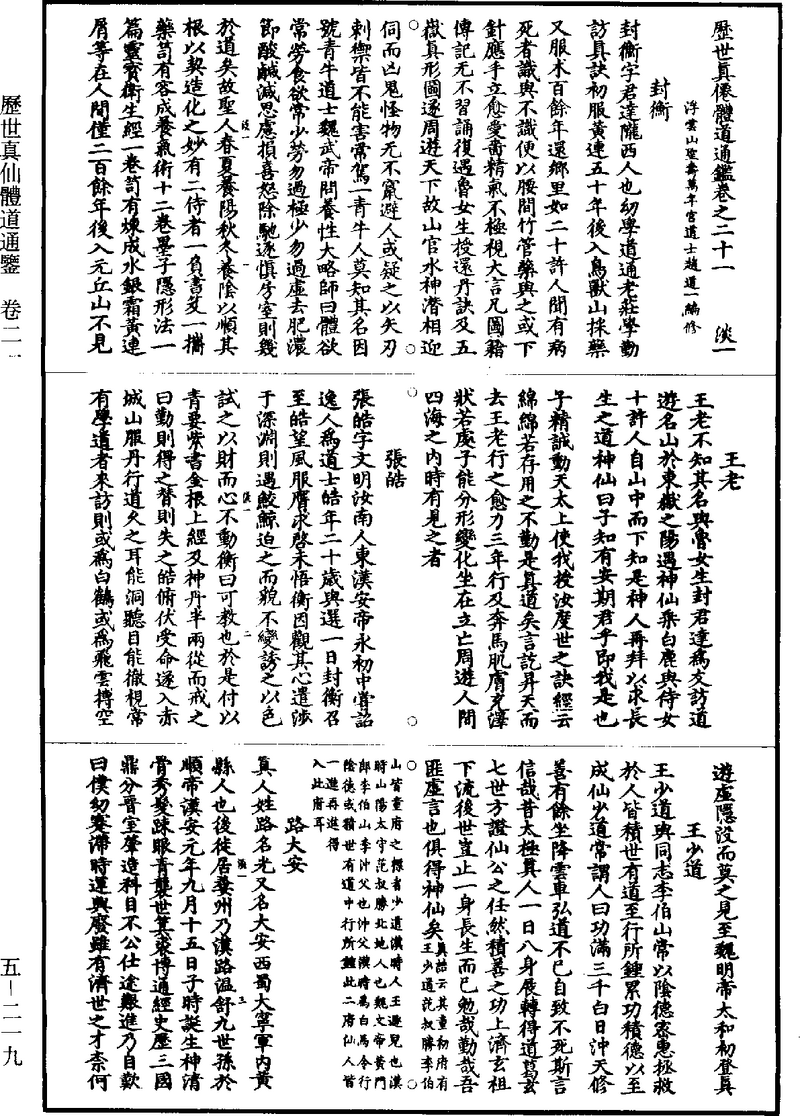 歷世真仙體道通鑒　卷二一
五—二一九
歷世眞僊體道通鑑卷之二十一　淡一
浮雲山聖壽萬年宮道士趙道一編修
封衡
封衡字君達隴西人也幼學道通老莊學勤
訪真訣初服黃連五十年後入鳥獸山採藥
又服朮百餘年還鄉里如二十許人聞有病
死者識與不識便以腰間竹管藥與之或下
針應手立愈愛嗇精氣不極視大言凡圖籍
傳記无不習誦復遇魯女生授還丹訣及五
嶽真形圖遂周遊天下故山官水神潛相迎
伺而凶鬼怪物无不竄避人或疑之以矢刃
刺禦皆不能害常駕一青牛人莫知其名因
號青牛道士魏武帝問養性大略師曰體欲
常勞食欲常少勞勿過極少勿過虛去肥濃
節酸鹹減思慮損喜怒除馳逐慎房室則幾
於道矣故聖人春夏養陽秋冬養陰以順其
根以契造化之妙有二侍者一負書笈一攜
藥笥有容成養氣術十二卷墨子隱形法一
篇靈寶衛生經一卷笥有煉成水銀霜黃連
屑等在人間僅二百餘年後入元丘山不見
王老
王老不知其名與魯女生封君達為友訪道
遊名山於東嶽之陽遇神仙乘白鹿與侍女
十許人自山中而下知是神人再拜以求長
生之道神仙曰子知有安期君乎即我是也
子精誠動天太上使我授汝度世之訣經云
綿綿若存用之不勤是真道矣言訖昇天而
去王老行之愈力三年行及奔馬肌膚充澤
狀若處子能分形變化坐在立亡周遊人間
四海之內時有見之者
張皓
張皓字文明汝南人東漢安帝永初中嘗詔
逸人為道士皓年二十歲與選一日封衡召
至皓望風服膺求啓未悟衡因觀其心遣涉
于深淵則遇鮫鯨迫之而貌不變誘之以色
試之以財而心不動衡曰可教也於是付以
青要紫書金根上經及神丹半兩從而戒之
曰勤則得之替則失之皓俯伏受命遂入赤
城山服丹行道久之耳能洞聽目能徹視常
有學道者來訪則或為白鶴或為飛雲摶空
遊虛隱沒而莫之見至魏明帝太和初登真
王少道
王少道與同志李伯山常以陰德密惠拯救
於人皆積世有道至行所鍾累功積德以至
成仙少道常謂人曰功滿三千白日沖天修
善有餘坐降雲車弘道不已自致不死斯言
信哉昔太極真人一日八身展轉得道葛玄
七世方證仙公之任然積善之功上濟玄祖
下流後世豈止一身長生而已勉哉勤哉吾
匪虛言也俱得神仙矣真誥云其童初府有王少道范叔勝李伯
山皆童府之標者少道漢時人王遜兒也漢
時山陽太守范叔勝北地人也魏文帝黃門
郎李伯山李沖父也沖父漢時為白馬令行
陰德或積世有道中行所鍾此二府仙人皆
一進再進得
入此府耳
路大安
真人姓路名光又名大安西蜀大寧軍內黃
縣人也後徙居夔州乃漢路溫舒九世孫於
順帝漢安元年九月十五日子時誕生神清
骨秀髮疎眼青襲世箕裘博通經史歷三國
鼎分晉室肇造科目不公仕途艱進乃自歎
曰僕幼蹇滯時運興廢雖有濟世之才柰何